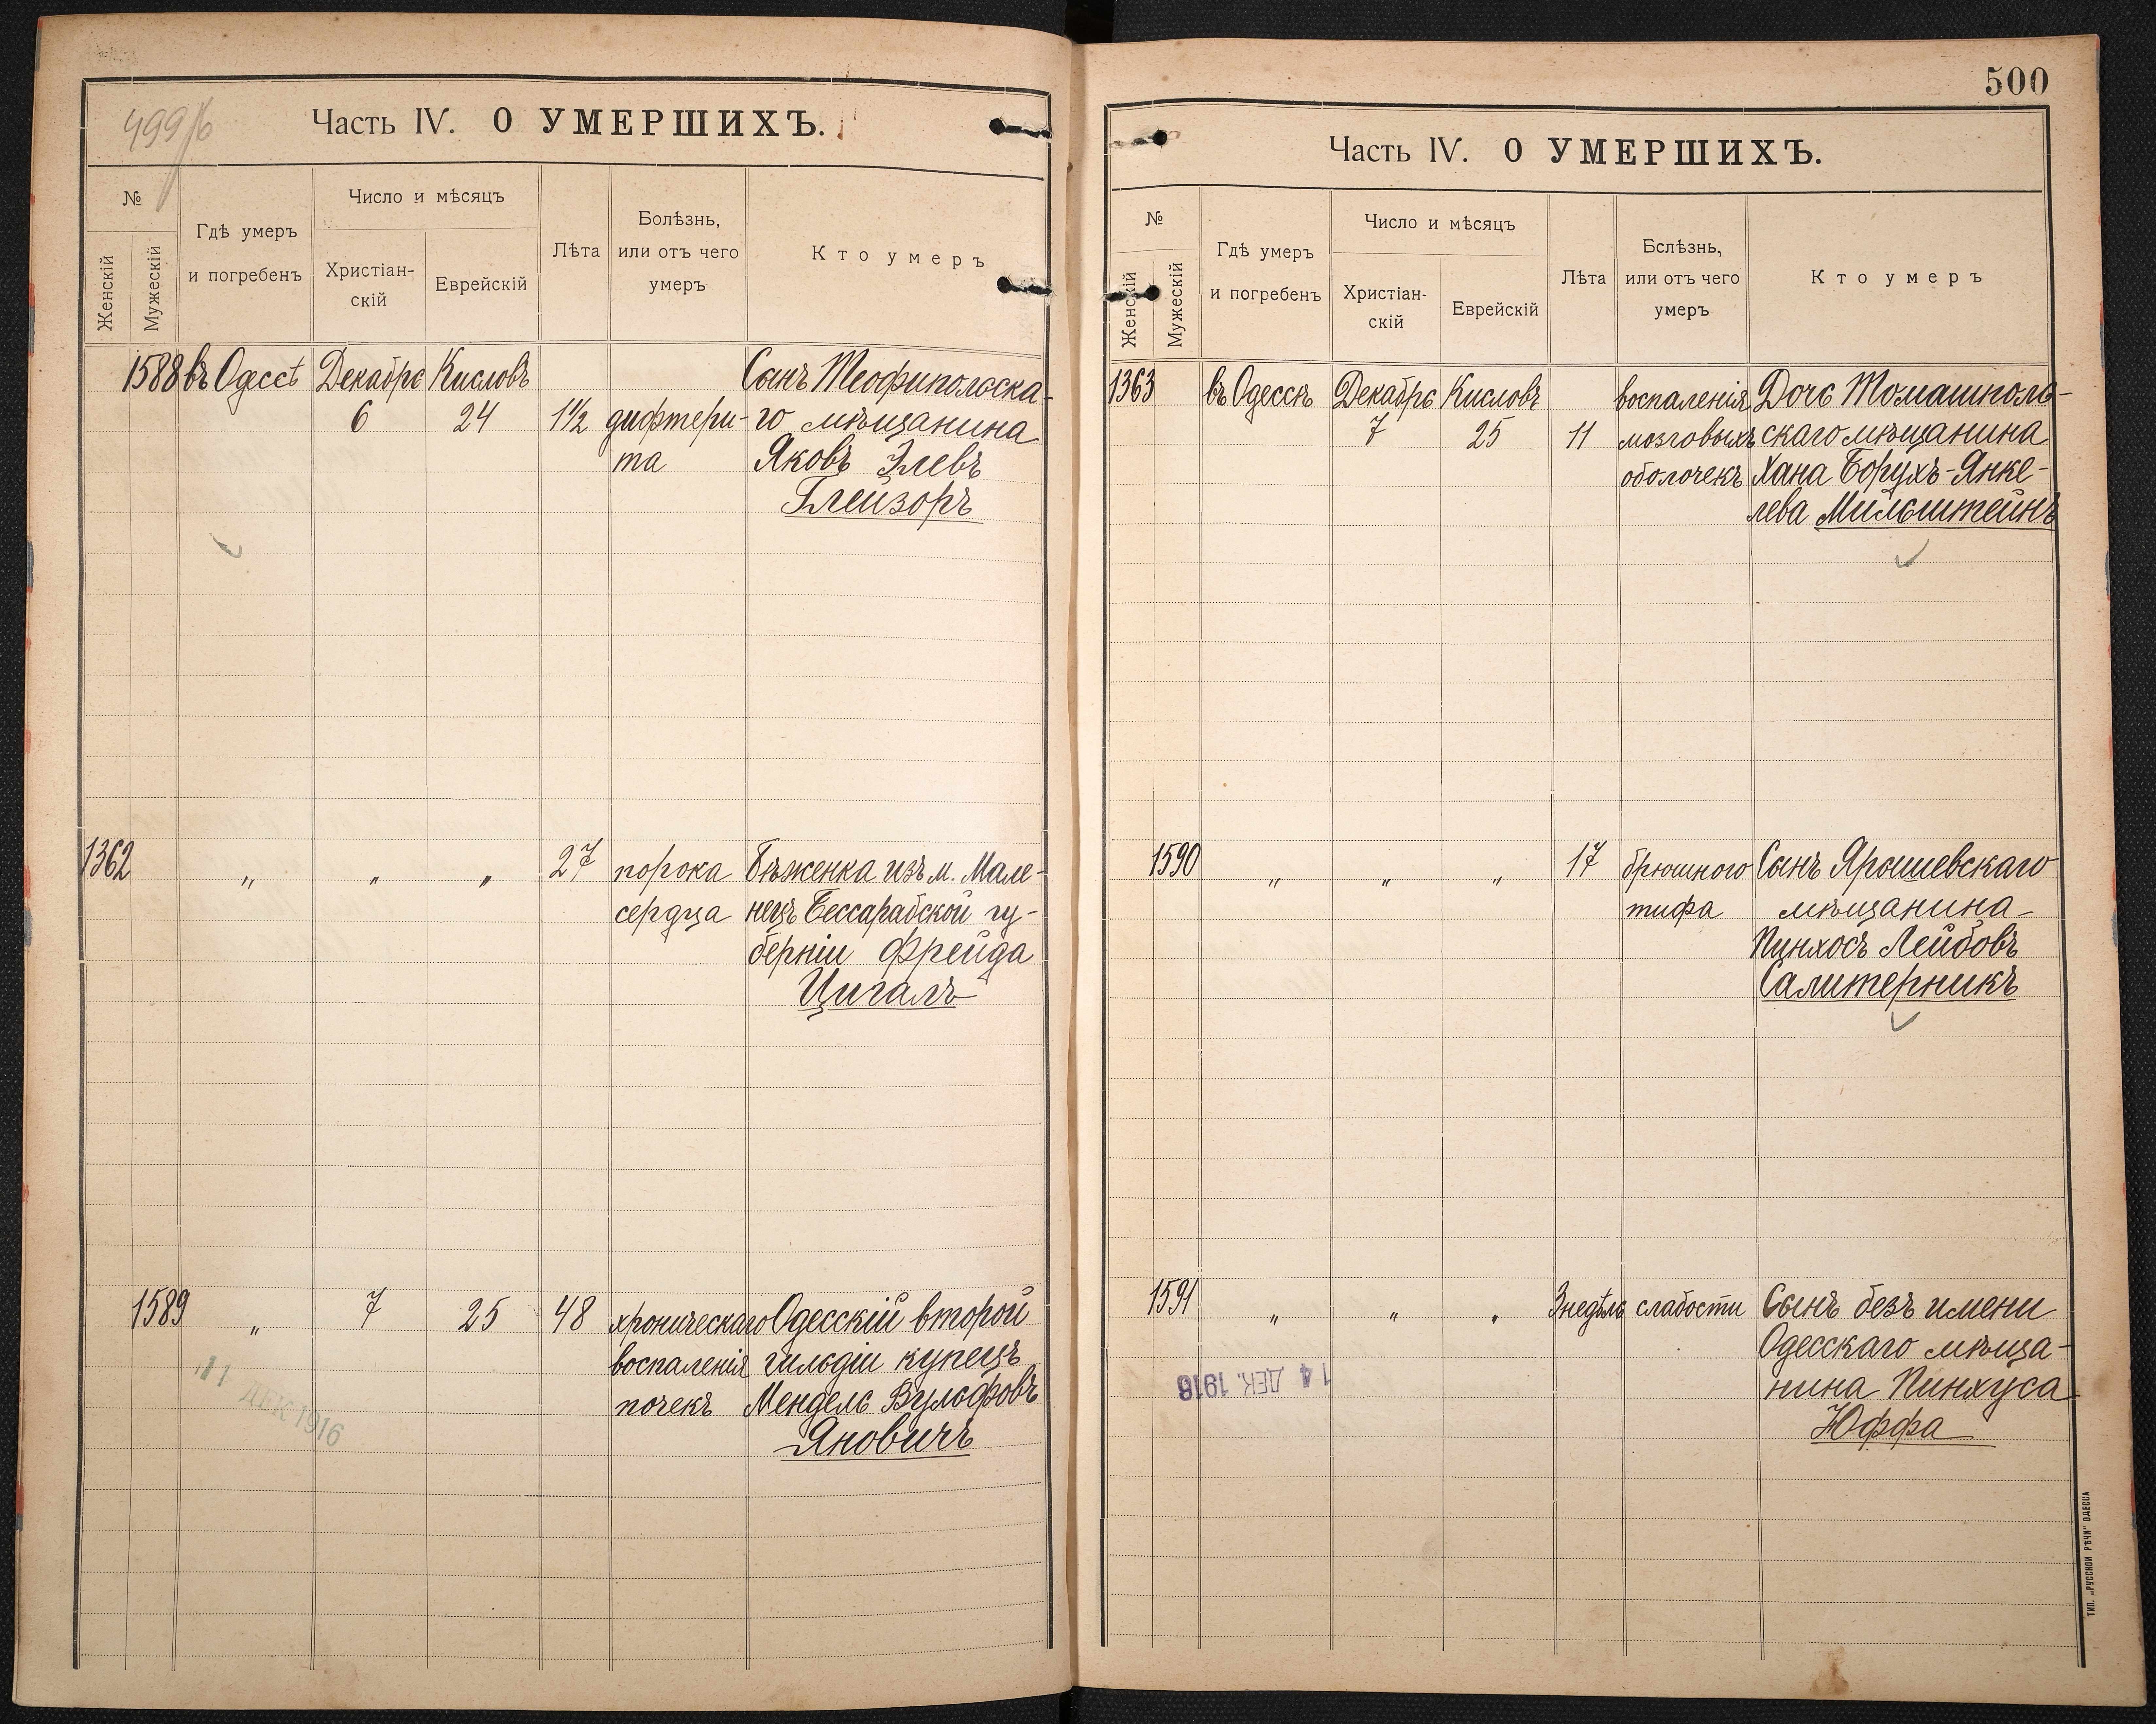 499
Часть IV. О УМЕРШИХЪ.
№
Женскій
Мужескій
Гдѣ умеръ
и погребенъ
Число и мѣсяцъ
Христіан-
скій
Еврейскій
Лѣта
Болѣзнь,
или отъ чего
умеръ
Кто умеръ
1588 въ Одессѣ Декабрь Кисловъ Сынъ Теофипольска-
6 24 1½ дифтери- го мѣщанина
та Яковъ Элевъ
Глейзоръ
1362 „ „ „ 27 порока Бѣженка изъ м. Мале-
сердца нецъ Бессарабской гу-
берніи Фрейда
Цигалъ
1589 „ 7 25 48 хроническаго Одесскій второй
воспаленія гильдіи купецъ
почекъ Мендель Вульфовъ
Яновичъ
11 ДЕК 1916
500
Часть IV. О УМЕРШИХЪ.
№
Женскій
Мужескій
Гдѣ умеръ
и погребенъ
Число и мѣсяцъ
Христіан-
скій
Еврейскій
Лѣта
Бслѣзнь,
или отъ чего
умеръ
Кто умеръ
1363 въ Одессѣ Декабрь Кисловъ воспаленія Дочь Томашполь-
7 25 11 мозговыхъ скаго мѣщанина
оболочекъ Хана Борухъ-Янке-
лева Мильштейнъ
1590 „ „ „ 17 брюшного Сынъ Ярышевскаго
тифа мѣщанина
Пинхосъ Лейбовъ
Салитерникъ
1591 „ „ „ 3 недѣль слабости Сынъ безъ имени
Одесскаго мѣща-
нина Пинхуса
Юффа
14 ДЕК. 1916
ТИП. „РУССКОЙ РѢЧИ" ОДЕССА